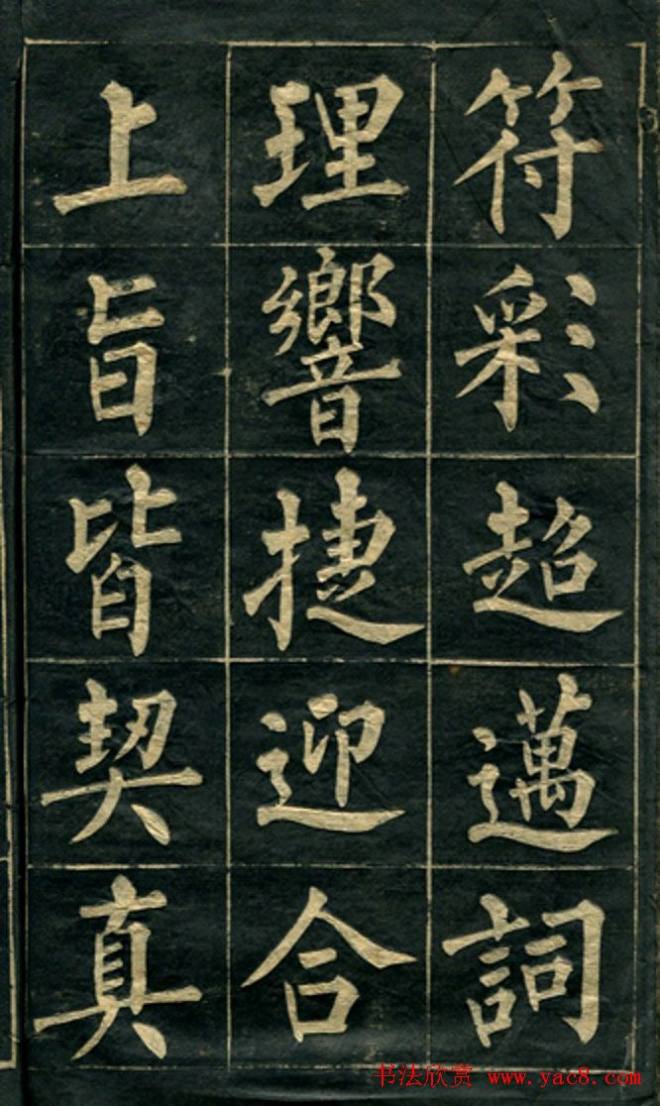 符彩超邁詞
理響捷迎合
上旨皆契真
书法欣赏 www.yac8.com